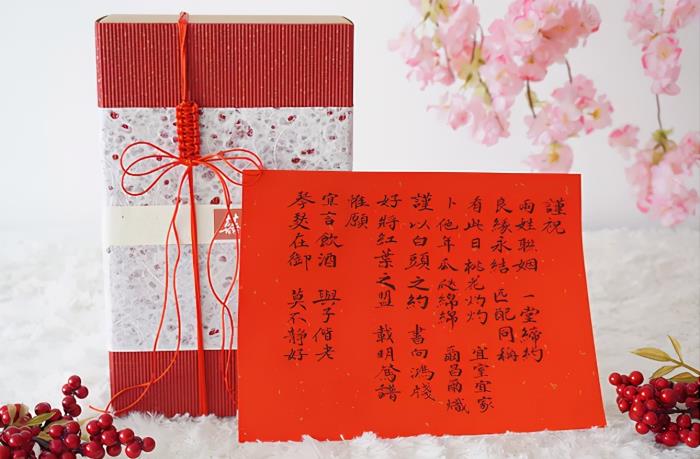 謹祝
兩姓聯姻 一堂締約
良緣永結 匹配同稱
看此日桃花灼灼 宜室宜家
卜他年瓜瓞綿綿 爾昌爾熾
謹以白頭之約 書向鴻牋
好將紅葉之盟 載明鴛譜
惟願
宜言飲酒 與子偕老
琴瑟在御 莫不靜好